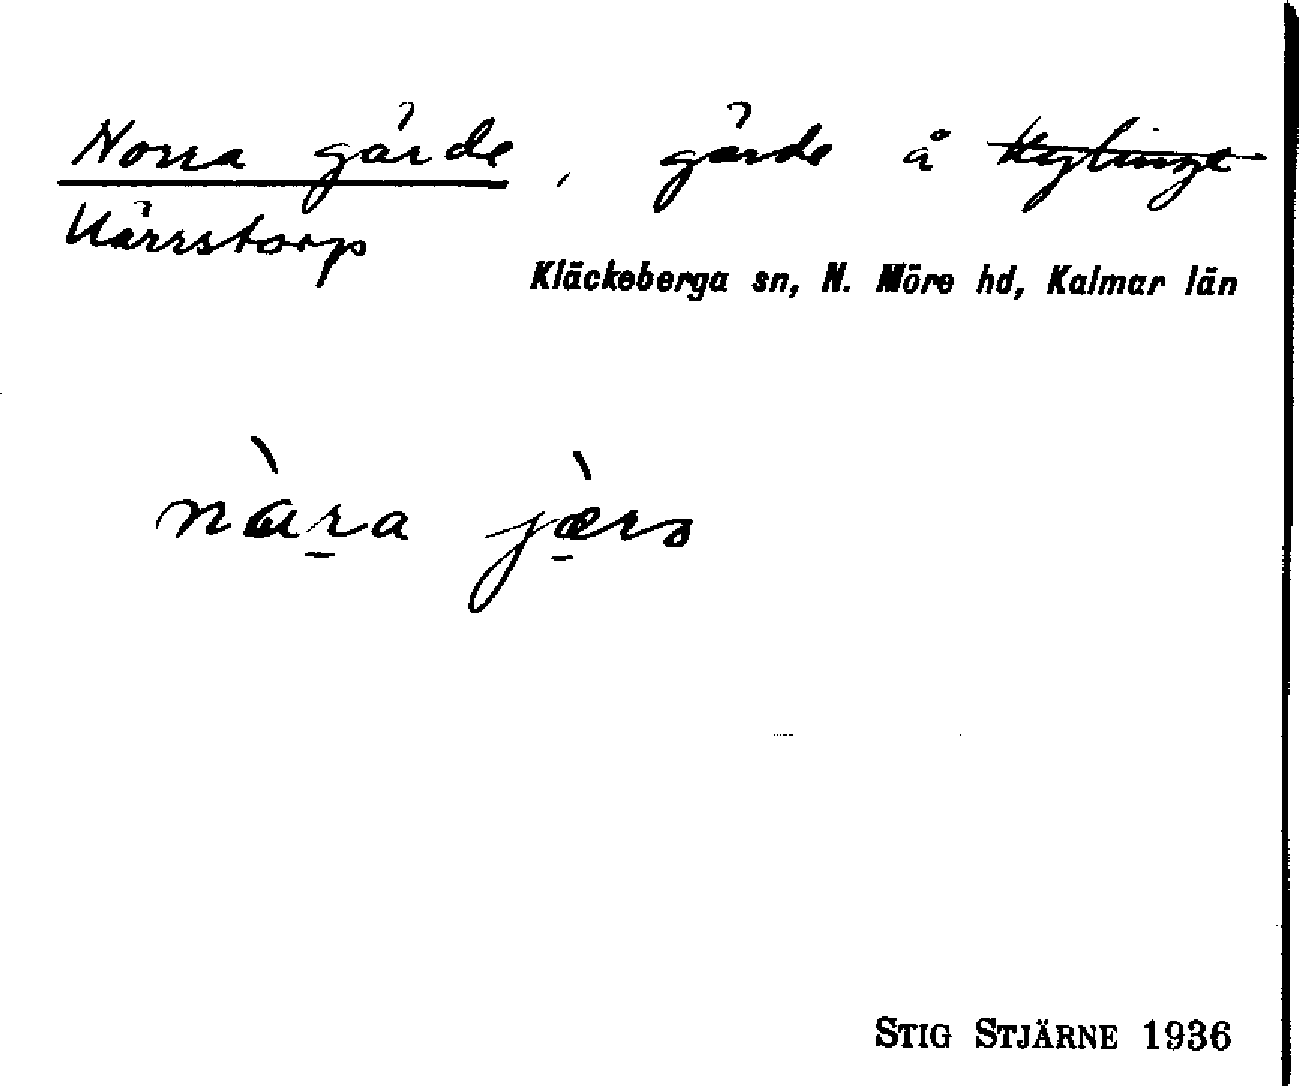 Norra gärde, gärde å Kylinge
Kärrstorp
Kläckeberga sn, N. Möre hd, Kalmar län
nàra jæ̀rə
STIG STJÄRNE 1936